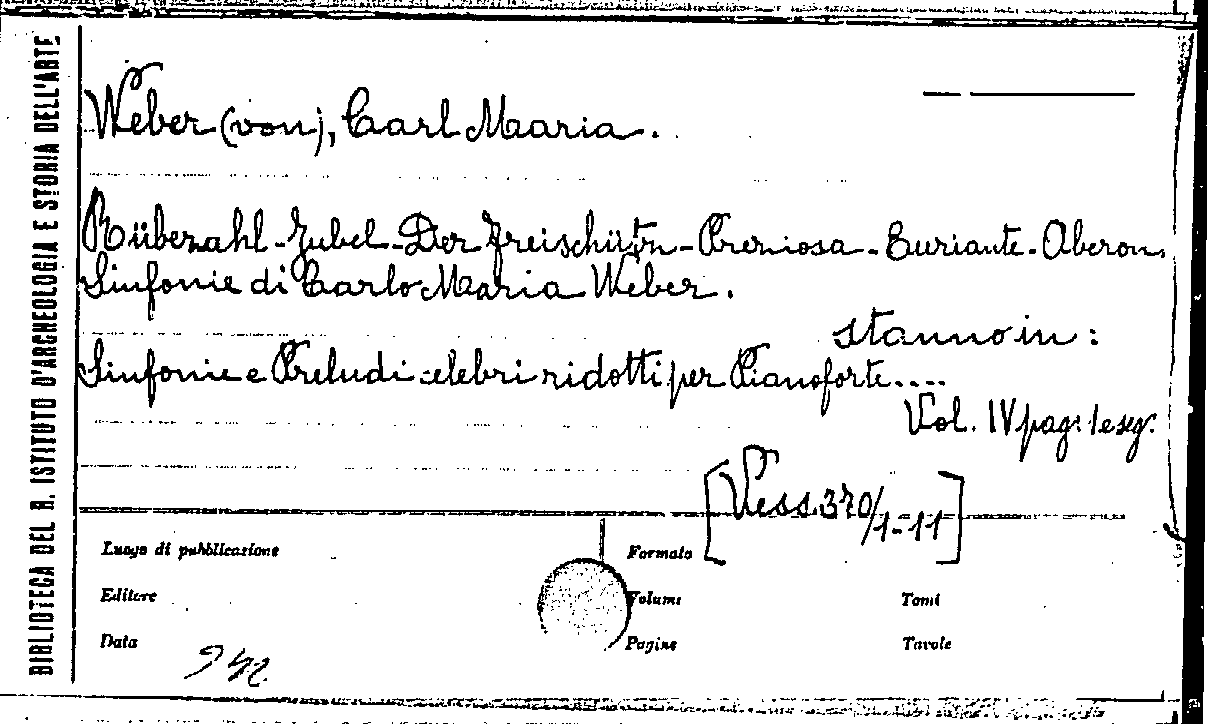 BIBLIOTECA DEL R. ISTITUTO D'ARCHEOLOGIA E STORIA DELL'ARTE
Weber (von), Carl Maria.
Rübezahl - Jubel - Der Freischütz - Preziosa - Euriante - Oberon.
Sinfonie di Carlo Maria Weber.
stanno in:
Sinfonie e Preludi celebri ridotti per Pianoforte....
Vol. IV pag: 1 e seg.
[Vess. 370/1-11]
Luogo di pubblicazione
Formato
Editore
Volumi
Tomi
Data
Pagine
Tavole